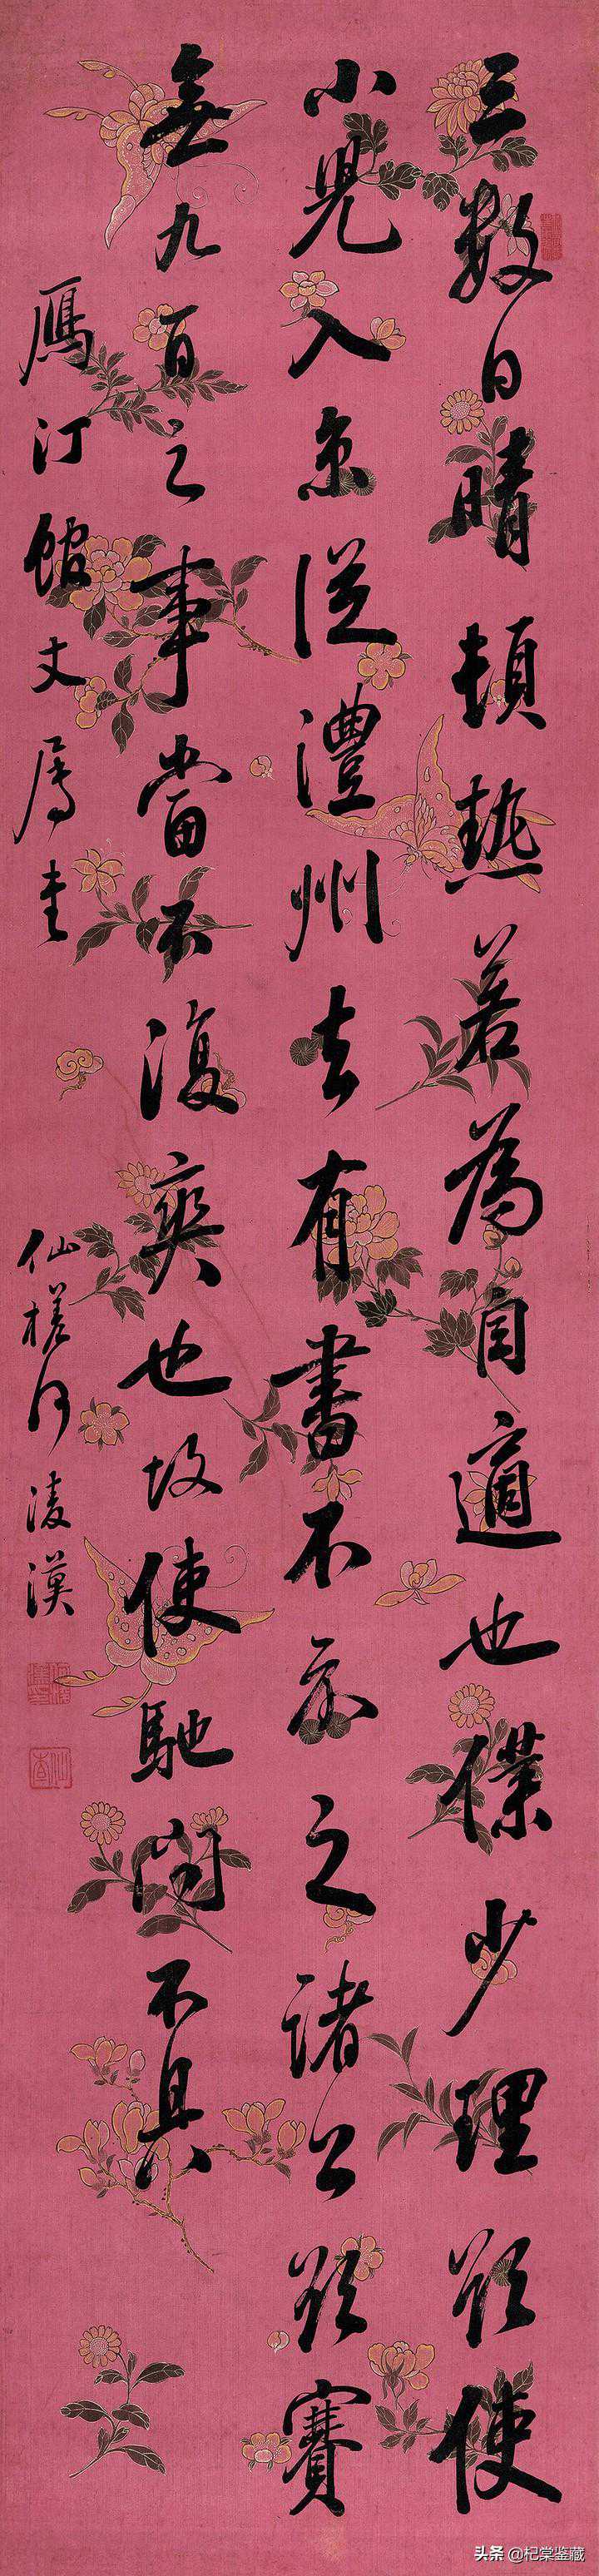 三數日晴頓熱若為自適也僕少理欲使
小兒入京從澧州去有書不示之諸公欲賽
無九百之事當不復爽也故使馳問不具
鴈汀館丈屬書
仙槎何淩漢
头条 @杞棠鉴藏